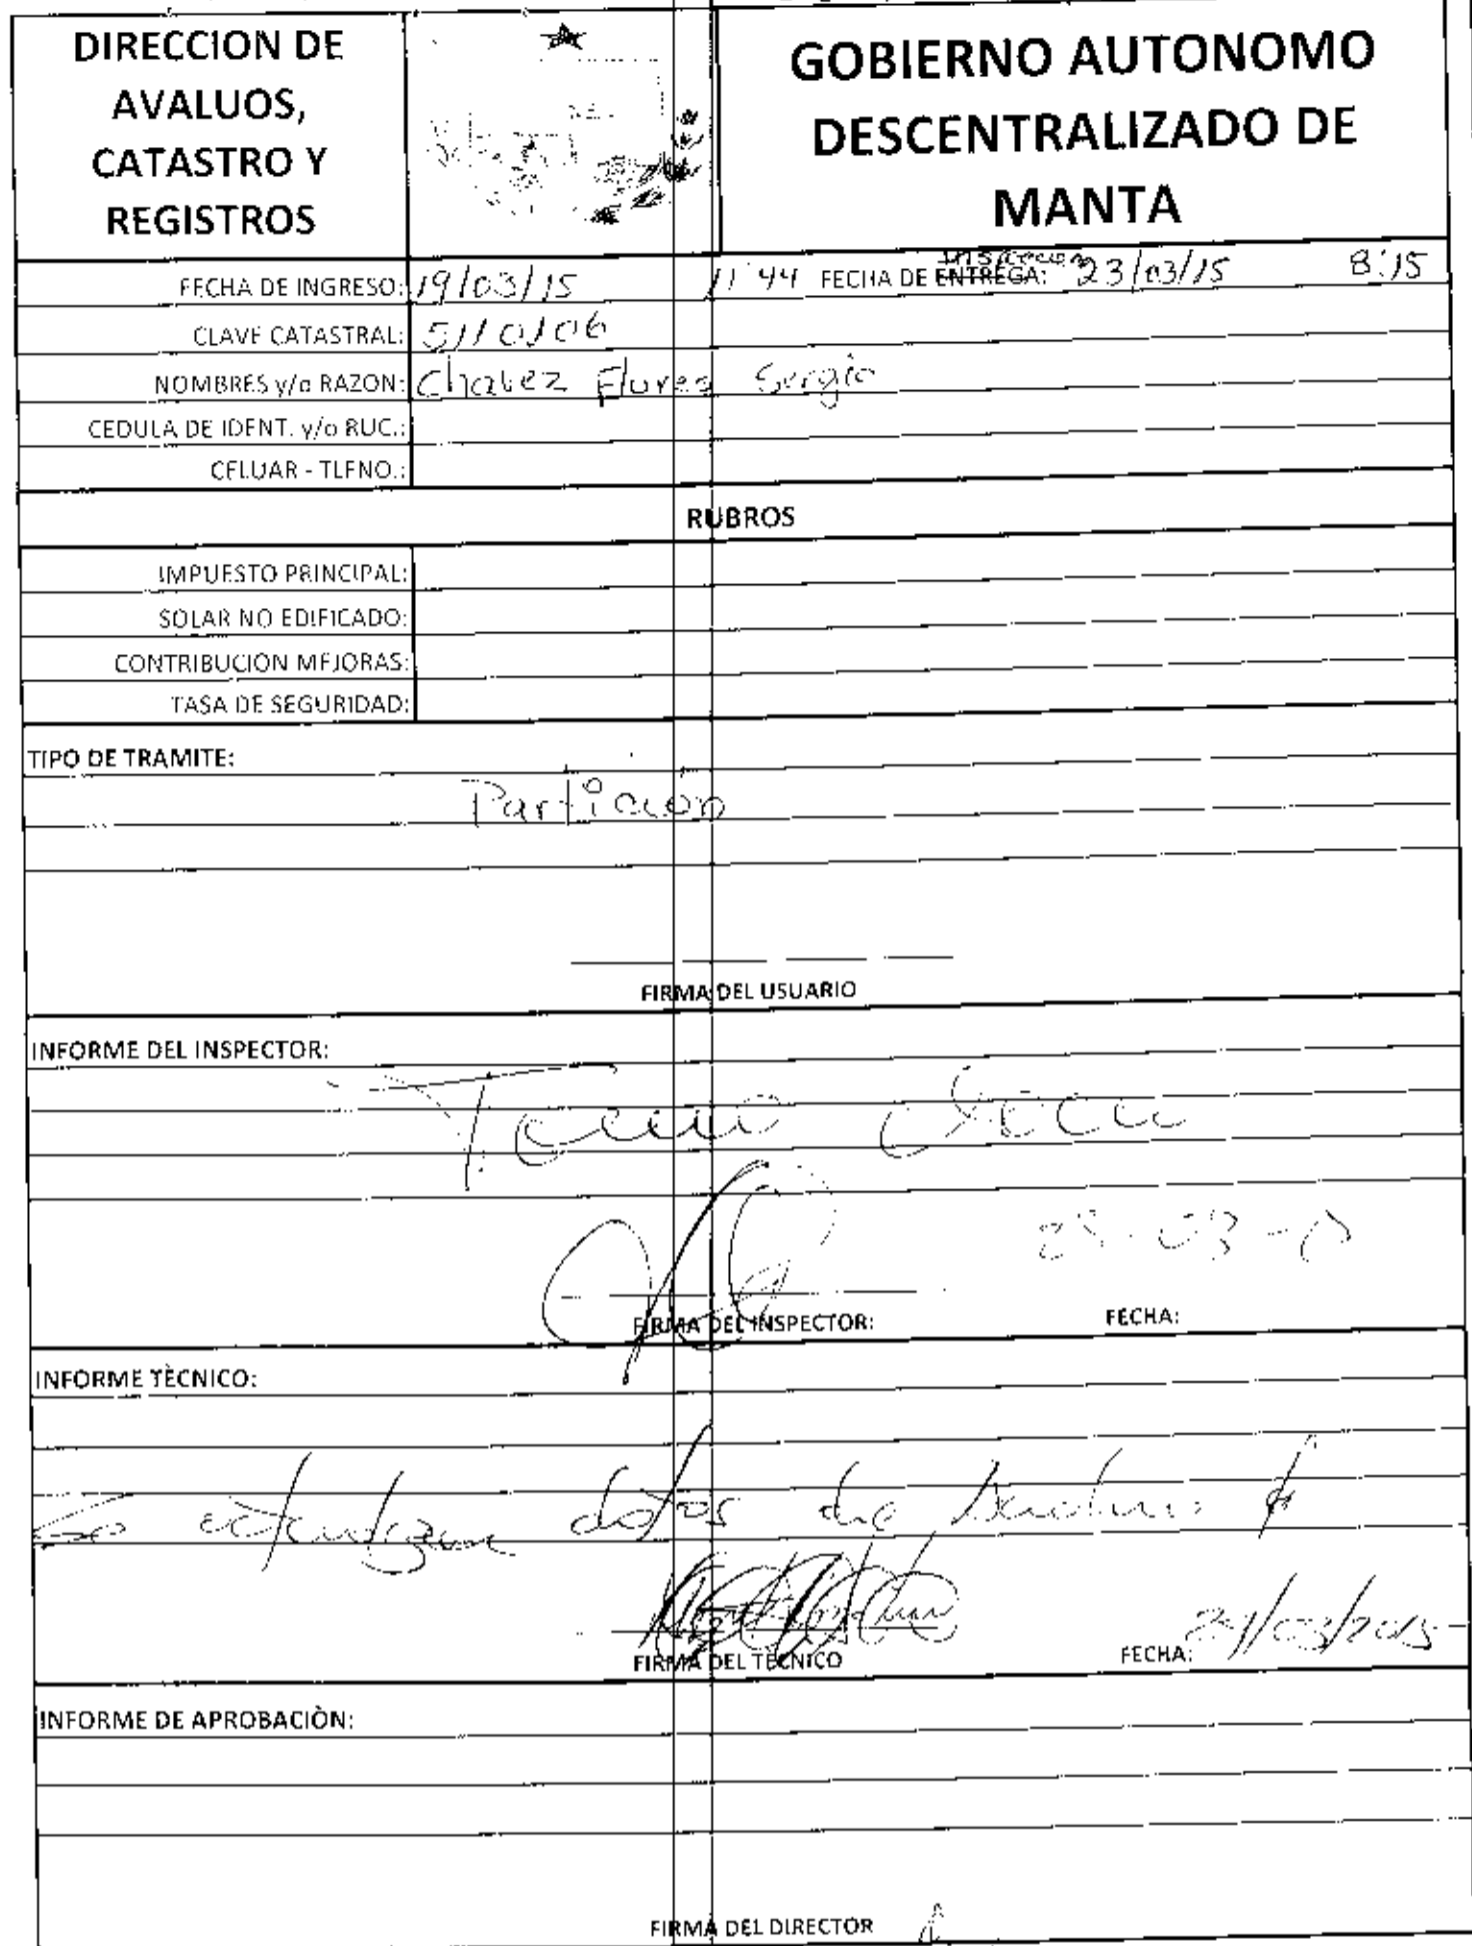 DIRECCION DE
AVALUOS,
CATASTRO Y
REGISTROS
GOBIERNO AUTONOMO
DESCENTRALIZADO DE
MANTA
FECHA DE INGRESO: 19/03/15 11:44 FECHA DE ENTREGA: 23/03/15 8:15
CLAVE CATASTRAL: 5110106
NOMBRES y/o RAZON: Chavez Flores Sergio
CEDULA DE IDENT. y/o RUC.:
CELUAR - TLFNO.:
RUBROS
IMPUESTO PRINCIPAL:
SOLAR NO EDIFICADO:
CONTRIBUCION MEJORAS:
TASA DE SEGURIDAD:
TIPO DE TRAMITE:
Particion
FIRMA DEL USUARIO
INFORME DEL INSPECTOR:
FIRMA DEL INSPECTOR: FECHA:
INFORME TÈCNICO:
datos de
FIRMA DEL TECNICO FECHA:
INFORME DE APROBACIÒN:
FIRMA DEL DIRECTOR